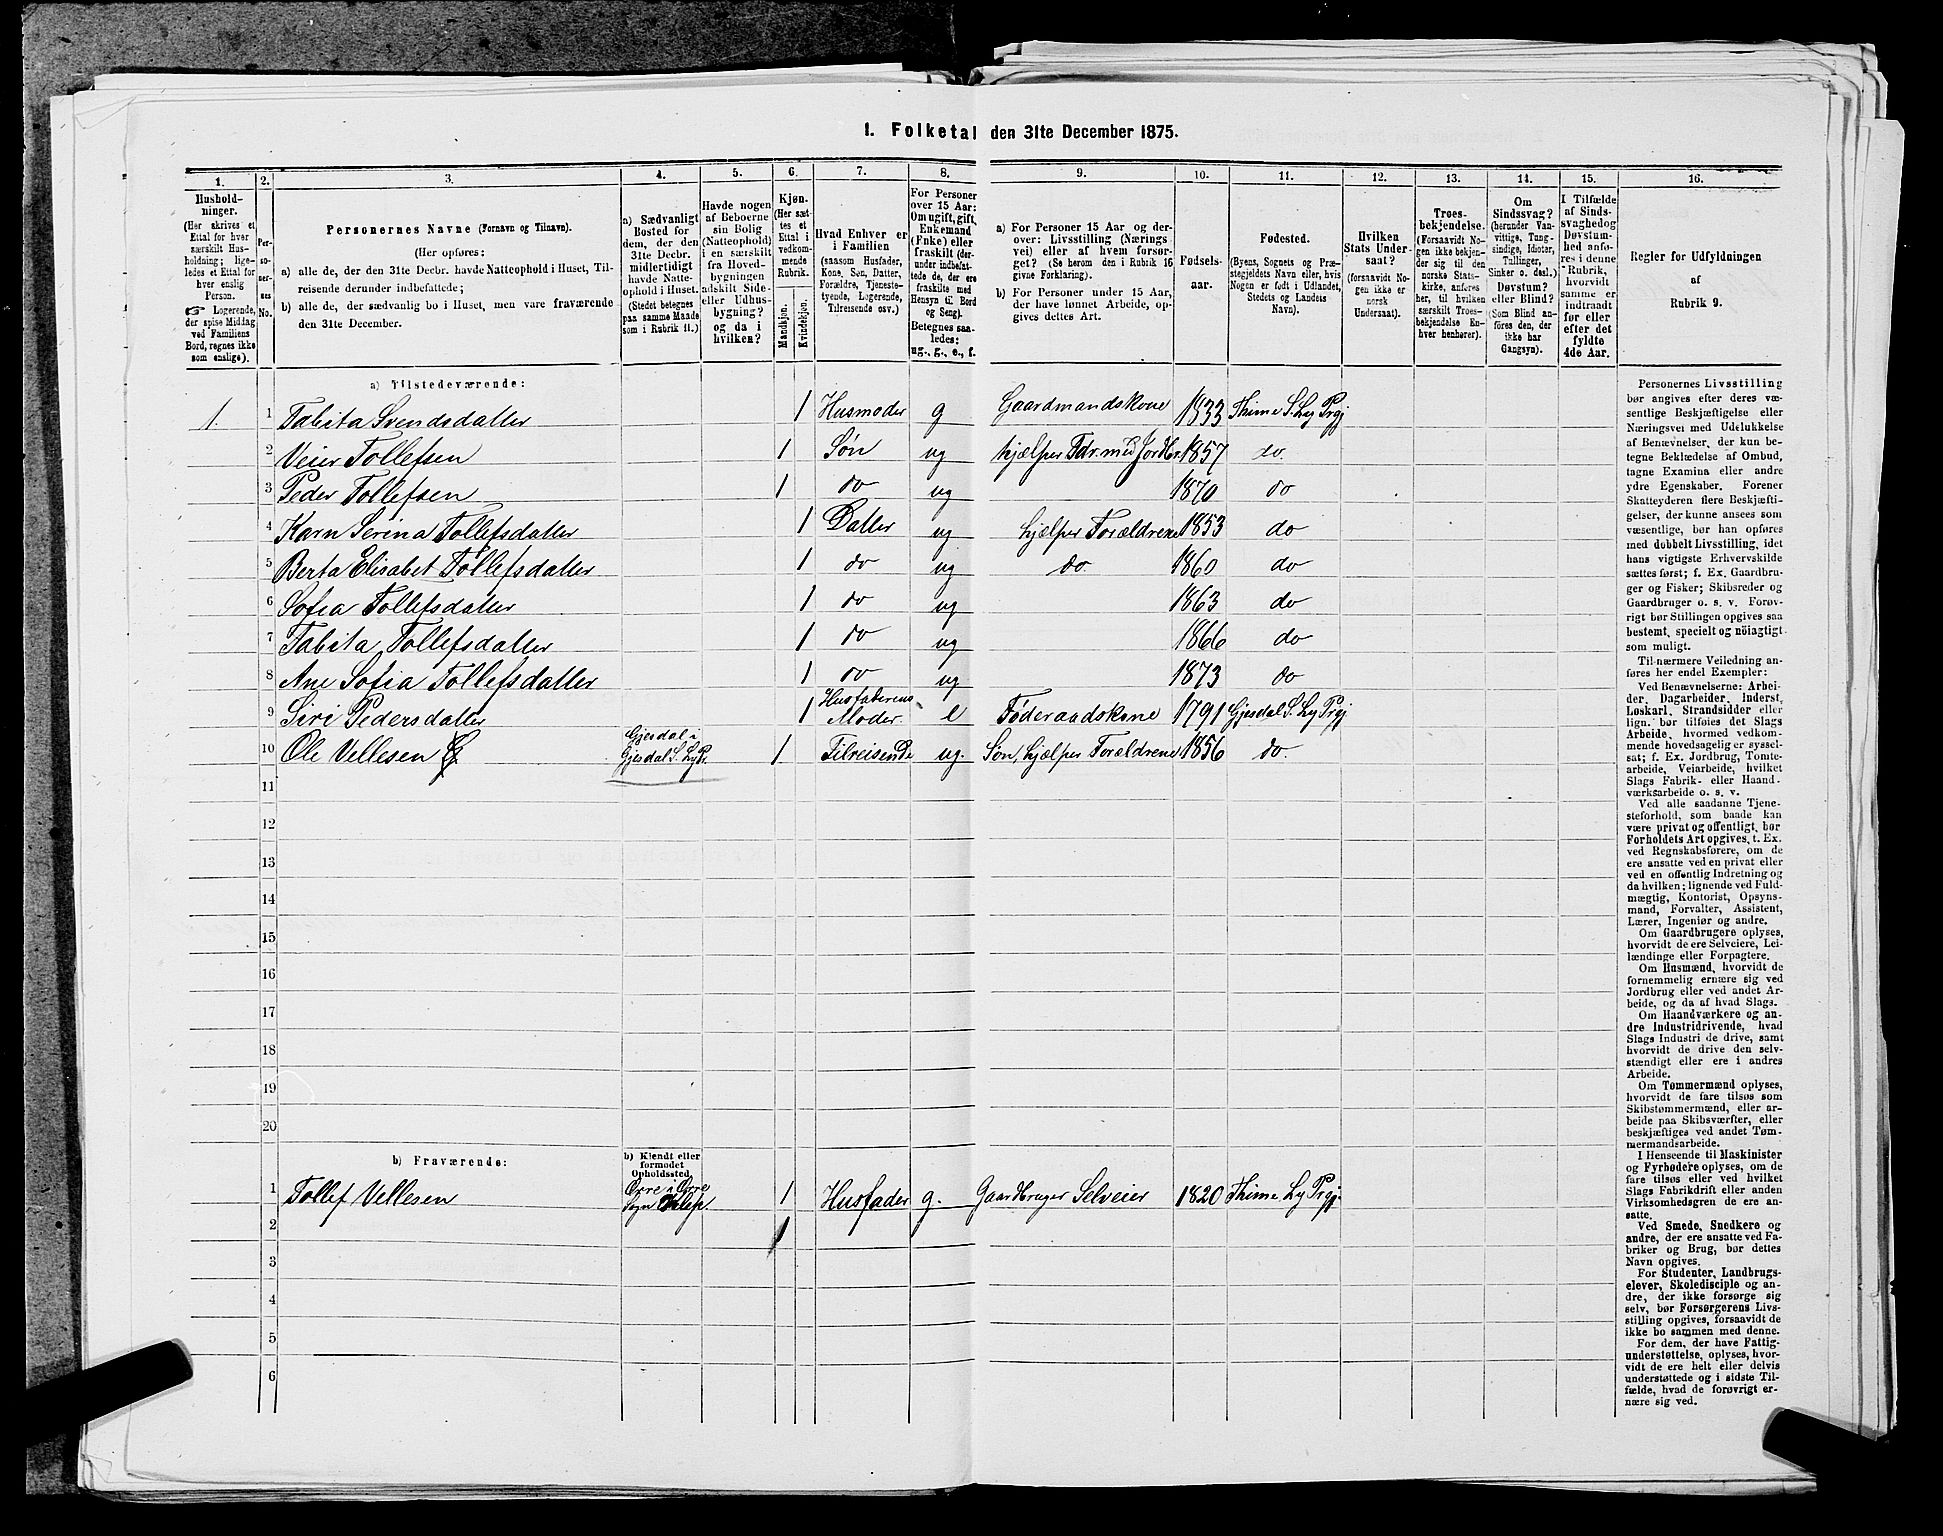 1. Folketal den 31te December 1875.
1.
2.
3.
4.
5.
6.
7.
8.
9.
10.
11.
12.
13.
14.
15.
16.
Hushold-
ninger.
(Her skrives et
Ettal for hver
særskilt Hus-
holdning; lige-
ledes et Ettal for
hver enslig
Person.
☞ Logerende,
der spise Middag
ved Familiens
Bord, regnes ikke
som enslige).
Per-
so-
ner-
nes
No.
Personernes Navne (Fornavn og Tilnavn).
(Her opføres:
a) alle de, der den 31te Decbr. havde Natteophold i Huset, Til-
reisende derunder indbefattede;
b) alle de, der sædvanlig bo i Huset, men vare fraværende
den 31te December.
a) Sædvanligt
Bosted for
dem, der den
31te Decbr.
midlertidigt
havde Natte-
ophold i Huset.
(Stedet betegnes
paa samme Maade
som i Rubrik 11.)
Havde nogen
af Beboerne
sin Bolig
(Natteophold)
i en særskilt
fra Hoved-
bygningen
adskilt Side-
eller Udhus-
bygning?
og da i
hvilken?
Kjøn.
(Her sæt-
tes et
Ettal i
vedkom-
mende
Rubrik.
Mandkjøn.
Kvindekjøn.
Hvad Enhver er
i Familien
(saasom Husfader,
Kone, Søn, Datter,
Forældre, Tjeneste-
tyende, Logerende,
Tilreisende osv.)
For Personer
over 15 Aar:
Om ugift, gift,
Enkemand
(Enke) eller
fraskilt (der-
under indbefat-
tede de, der ere
fraskilte med
Hensyn til Bord
og Seng).
Betegnes saa-
ledes:
ug., g., e., f.
a) For Personer 15 Aar og der-
over: Livsstilling (Nærings-
vei) eller af hvem forsør-
get? (Se herom den i Rubrik 16
givne Forklaring).
b) For Personer under 15 Aar,
der have lønnet Arbeide, op-
gives dettes Art.
Fødsels-
aar.
Fødested.
(Byens, Sognets og Præ-
stegjeldets Navn eller, hvis
Nogen er født i Udlandet,
Stedets og Landets
Navn).
Hvilken
Stats Under-
saat?
(forsaavidt No-
gen ikke er
norsk
Undersaat).
Troes-
bekjendelse.
(Forsaavidt No-
gen ikke bekjen-
der sig til den
norske Stats-
kirke, anføres
her, til hvilken
særskilt Troes-
bekjendelse En-
hver henhører).
Om
Sindssvag?
(herunder Van-
vittige, Tung-
sindige, Idioter,
Tullinger,
Sinker o. desl.)
Døvstum?
eller Blind?
(Som Blind an-
føres den, der
ikke har
Gangsyn).
I Tilfælde
af Sinds-
svaghedog
Døvstum-
hed anfø-
res i denne
Rubrik,
hvorvidt
samme er
indtraadt
før eller
efter det
fyldte
4de Aar.
Regler for Udfyldningen
af
Rubrik 9.
a) Tilstedeværende:
1. 1 Tabita Svendsdatter 1 Husmoder g Gaardmandskone 1833 Thime S. Ly Prgj
2 Veier Tollefsen 1 Søn ug hjælper Fdr. med Jordbr. 1857 do.
3 Peder Tollefsen 1 do ug 1870 do
4 Karn Serina Tollefsdatter 1 Datter ug hjælper Forældrene 1853 do
5 Berta Elisabet Tollefsdatter 1 do ug do. 1860 do
6 Sofia Tollefsdatter 1 do ug 1863 do
7 Tabita Tollefsdatter 1 do ug 1866 do
8 Ane Sofia Tollefsdatter 1 do ug 1873 do
9 Siri Pedersdatter 1 Husfaderens Moder. e Føderaadskone 1791 Gjesdal S. Ly Prgj
10 Ole Vellesen Gjesdal i Gjesdal S. Ly Pr. 1 Tilreisende ug. Søn, hjælper Forældrene 1856 do.
11
12
13
14
15
16
17
18
19
20
b) Fraværende:
b) Kjendt eller
formodet
Opholdssted.
1 Tollef Vellesen Orre i Orre Sogn Klep. 1 Husfader g. Gaardbruger Selveier 1820 Thime Ly Prgj.
2 1
3
4
5
6
Personernes Livsstilling
bør angives efter deres væ-
sentlige Beskjæftigelse eller
Næringsvei med Udelukkelse
af Benævnelser, der kun be-
tegne Beklædelse af Ombud,
tagne Examina eller andre
ydre Egenskaber. Forener
Skatteyderen flere Beskjæfti-
gelser, der kunne ansees som
væsentlige, bør han opføres
med dobbelt Livsstilling, idet
hans vigtigste Erhvervskilde
sættes først; f. Ex. Gaardbru-
ger og Fisker; Skibsreder og
Gaardbruger o. s. v. Forøv-
rigt bør Stillingen opgives saa
bestemt, specielt og nöiagtigt
som muligt.
Til nærmere Veiledning an-
føres her endel Exempler:
Ved Benævnelserne: Arbei-
der, Dagarbeider, Inderst,
Løskarl, Strandsidder eller
lign. bør tilføies det Slags
Arbeide, hvormed vedkom-
mende hovedsagelig er syssel-
sat; f. Ex. Jordbrug, Tomte-
arbeide, Veiarbeide, hvilket
Slags Fabrik- eller Haand-
værksarbeide o. s. v.
Ved alle saadanne Tjene-
steforhold, som baade kan
være privat og offentligt, bør
Forholdets Art opgives, t. Ex.
ved Regnskabsførere, om de
ere ansatte ved en privat eller
ved en offentlig Indretning og
da hvilken; lignende ved Fuld-
mægtig, Kontorist, Opsyns-
mand, Forvalter, Assistent,
Lærer, Ingeniør og andre.
Om Gaardbrugere oplyses,
hvorvidt de ere Selveiere, Lei-
lændinge eller Forpagtere.
Om Husmænd, hvorvidt de
fornemmelig ernære sig ved
Jordbrug eller ved andet Ar-
beide, og da af hvad Slags.
Om Haandværkere og an-
dre Industridrivende, hvad
Slags Industri de drive, samt
hvorvidt de drive den selv-
stændigt eller ere i andres
Arbeide.
Om Tømmermænd oplyses,
hvorvidt de fare tilsøs som
Skibstømmermænd, eller ar-
beide paa Skibsværfter, eller
beskjæftiges ved andet Tøm-
mermandsarbeide.
I Henseende til Maskinister
og Fyrbødere oplyses, om de
fare tilsøs eller ved hvilket
Slags Fabrikdrift eller anden
Virksomhedsgren de ere an-
satte.
Ved Smede, Snedkere og
andre, der ere ansatte ved Fa-
briker og Brug, bør dettes
Navn opgives.
For Studenter, Landbrugs-
elever, Skoledisciple og an-
dre, der ikke forsørge sig
selv, bør Forsørgerens Livs-
stilling opgives, forsaavidt de
ikke bo sammen med denne.
For dem, der have Fattig-
understøttelse, oplyses, hvor-
vidt de ere helt eller delvis
understøttede og i sidste Til-
fælde, hvad de forøvrigt er-
nære sig ved.